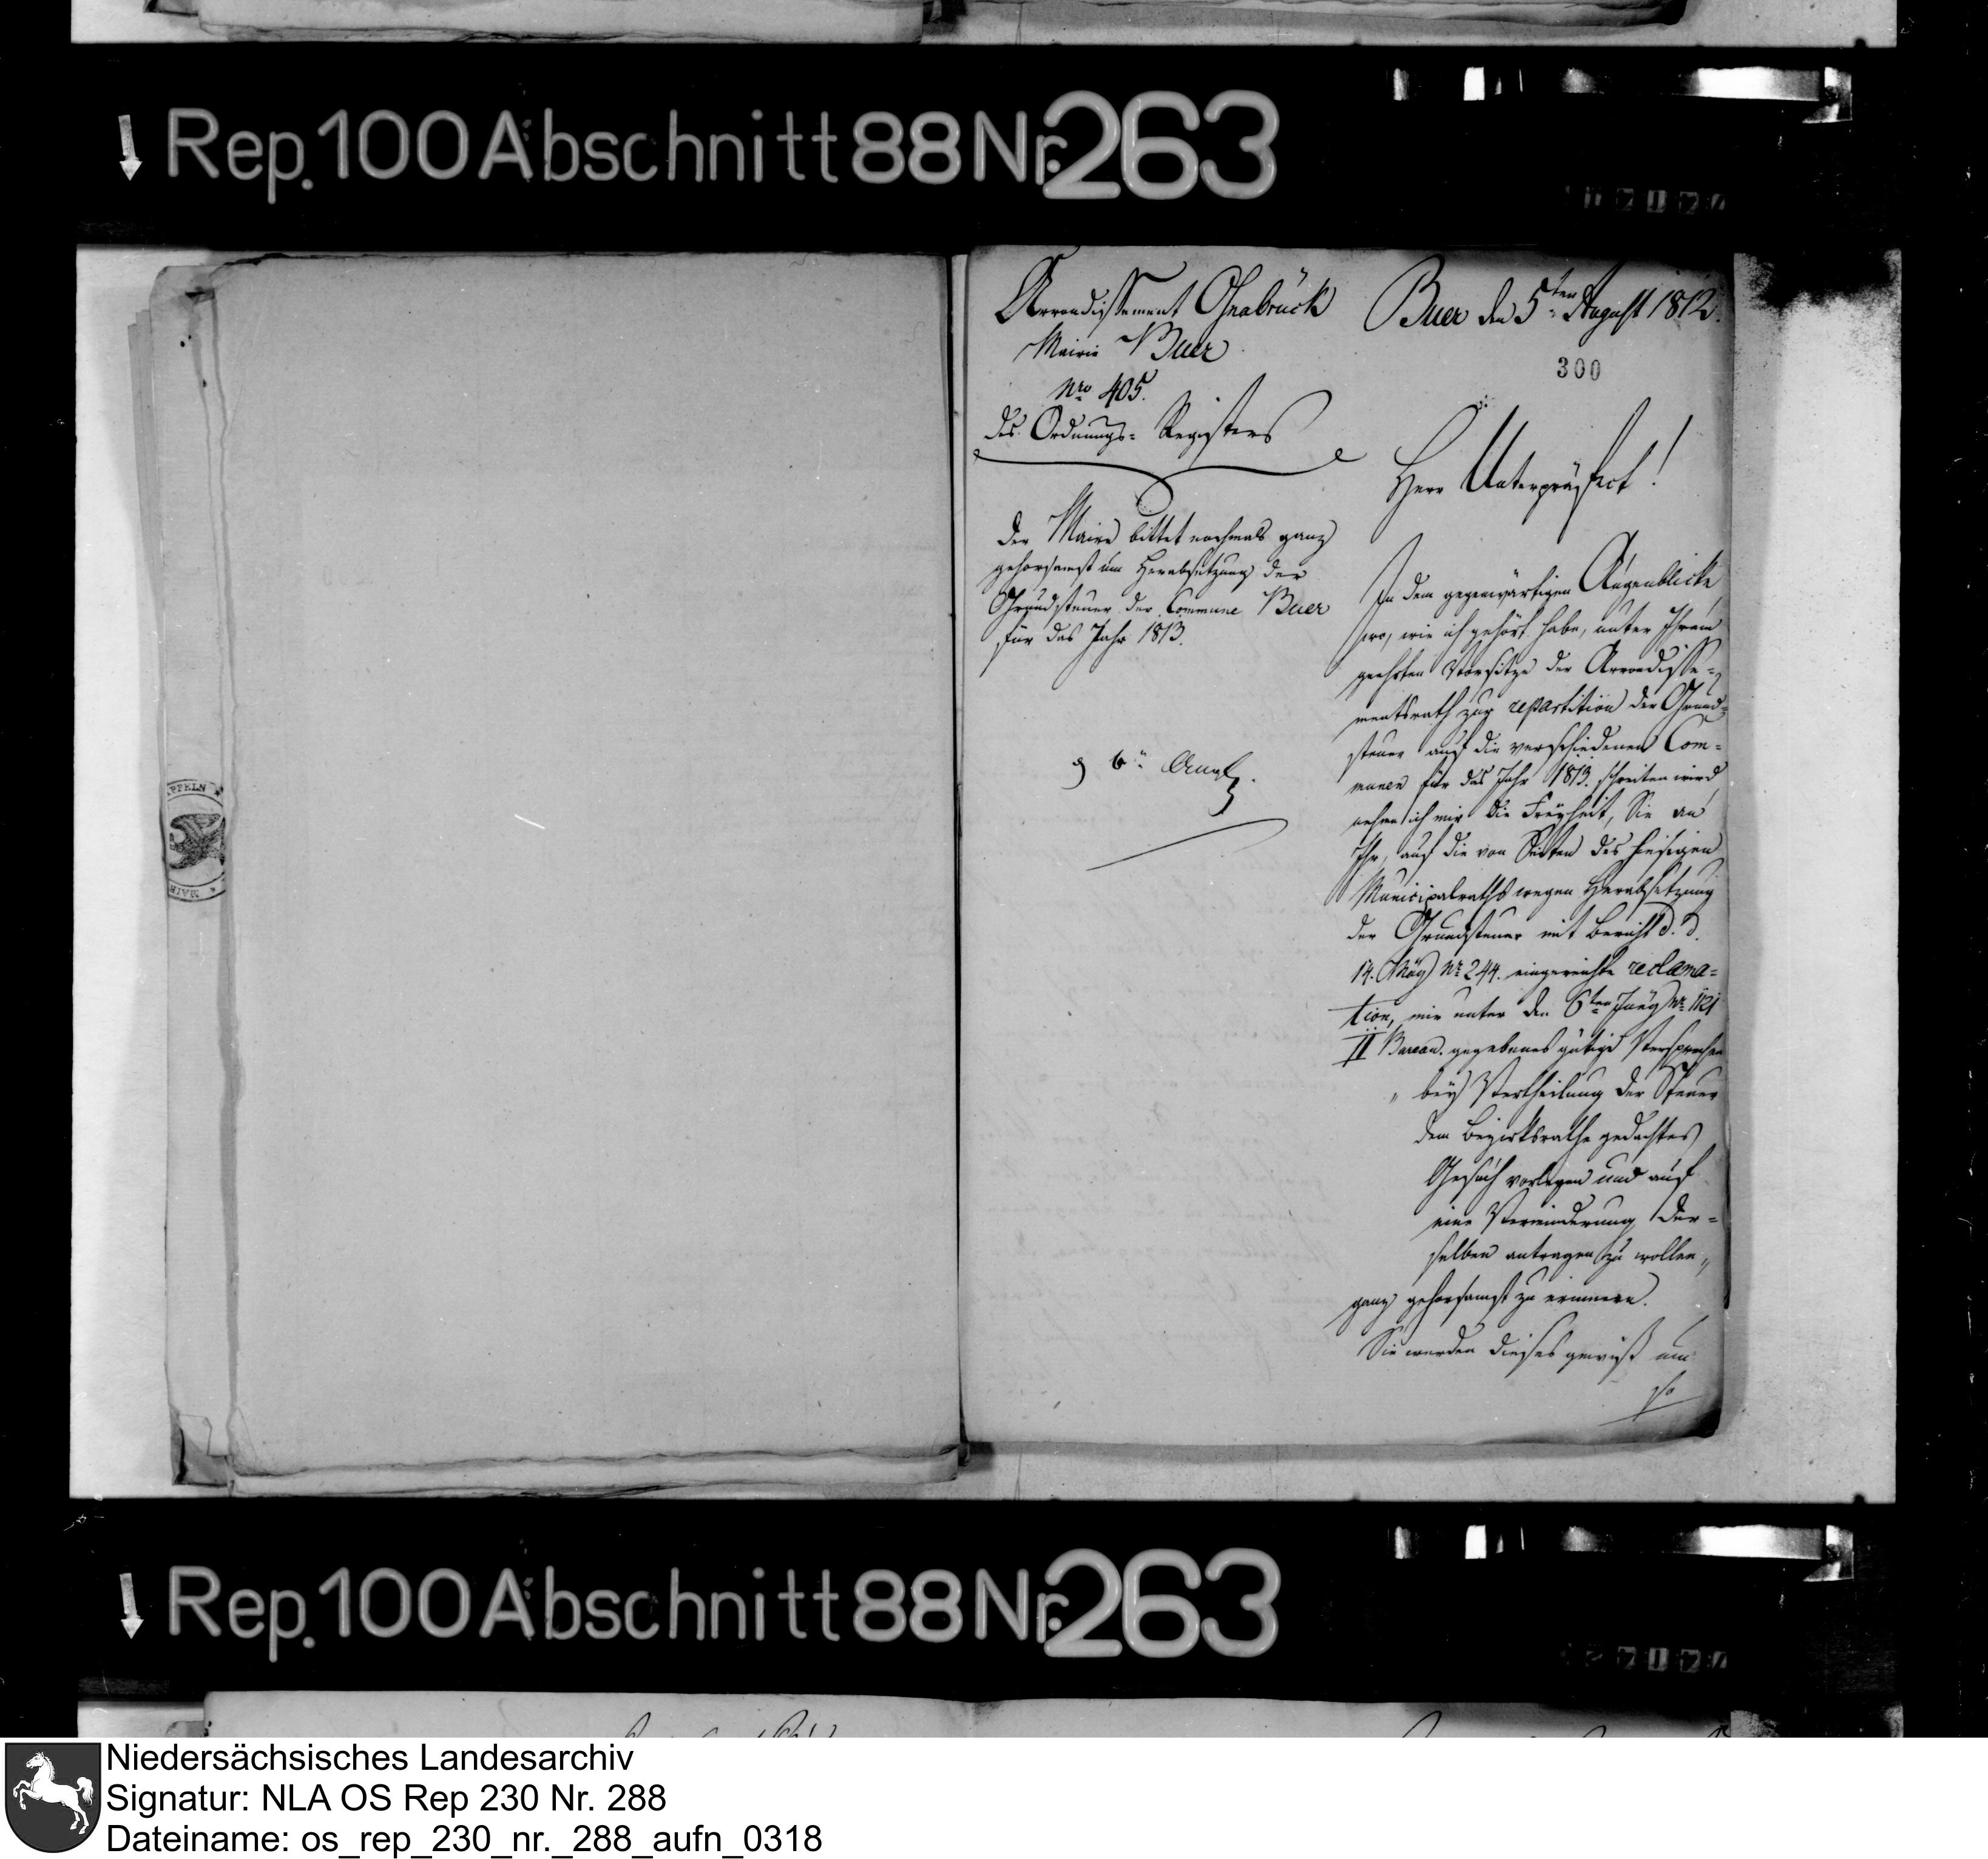 Rep. 100 Abschnitt 88 Nr. 263
Arrondissement Osnabrück
Mairie Buer
Nro 405.
des Ordnungs- Registers
Der Maire bittet nochmals ganz
gehorsamst um Herabsetzung der
Grundsteuer der Commune Buer
für das Jahr 1813.
Buer den 5ten August 1812.
300
Herr Unterpräfect!
In dem gegenwärtigen Augenblicke
wo, wie ich gehört habe, unter Ihrem
geehrten Vorsitze der Arrondisse-
mentsrath zur repartition der Grund-
steuer auf die verschiedenen Com-
munen für das Jahr 1813. schreiten wird
nehme ich mir die Freyheit, Sie an
Ihr, auf die von Seiten des hiesigen
Municipalraths wegen Herabsetzung
der Grundsteuer mit Bericht d. d.
14. May Nr 244. eingereichte reclama-
tion, mir unter den 6ten Juny Nr 1121
II Bureau. gegebenes gütige Versprechen
" bey Vertheilung der Steuer
dem Bezirksrathe gedachtes
Gesuch vorlegen und auf
eine Verminderung der-
selben antragen zu wollen "
ganz gehorsamst zu erinnern.
Sie werden dieses gewiß um
so
PPELN
MAIR
Rep. 100 Abschnitt 88 Nr. 263
Niedersächsisches Landesarchiv
Signatur: NLA OS Rep 230 Nr. 288
Dateiname: os_rep_230_nr._288_aufn_0318